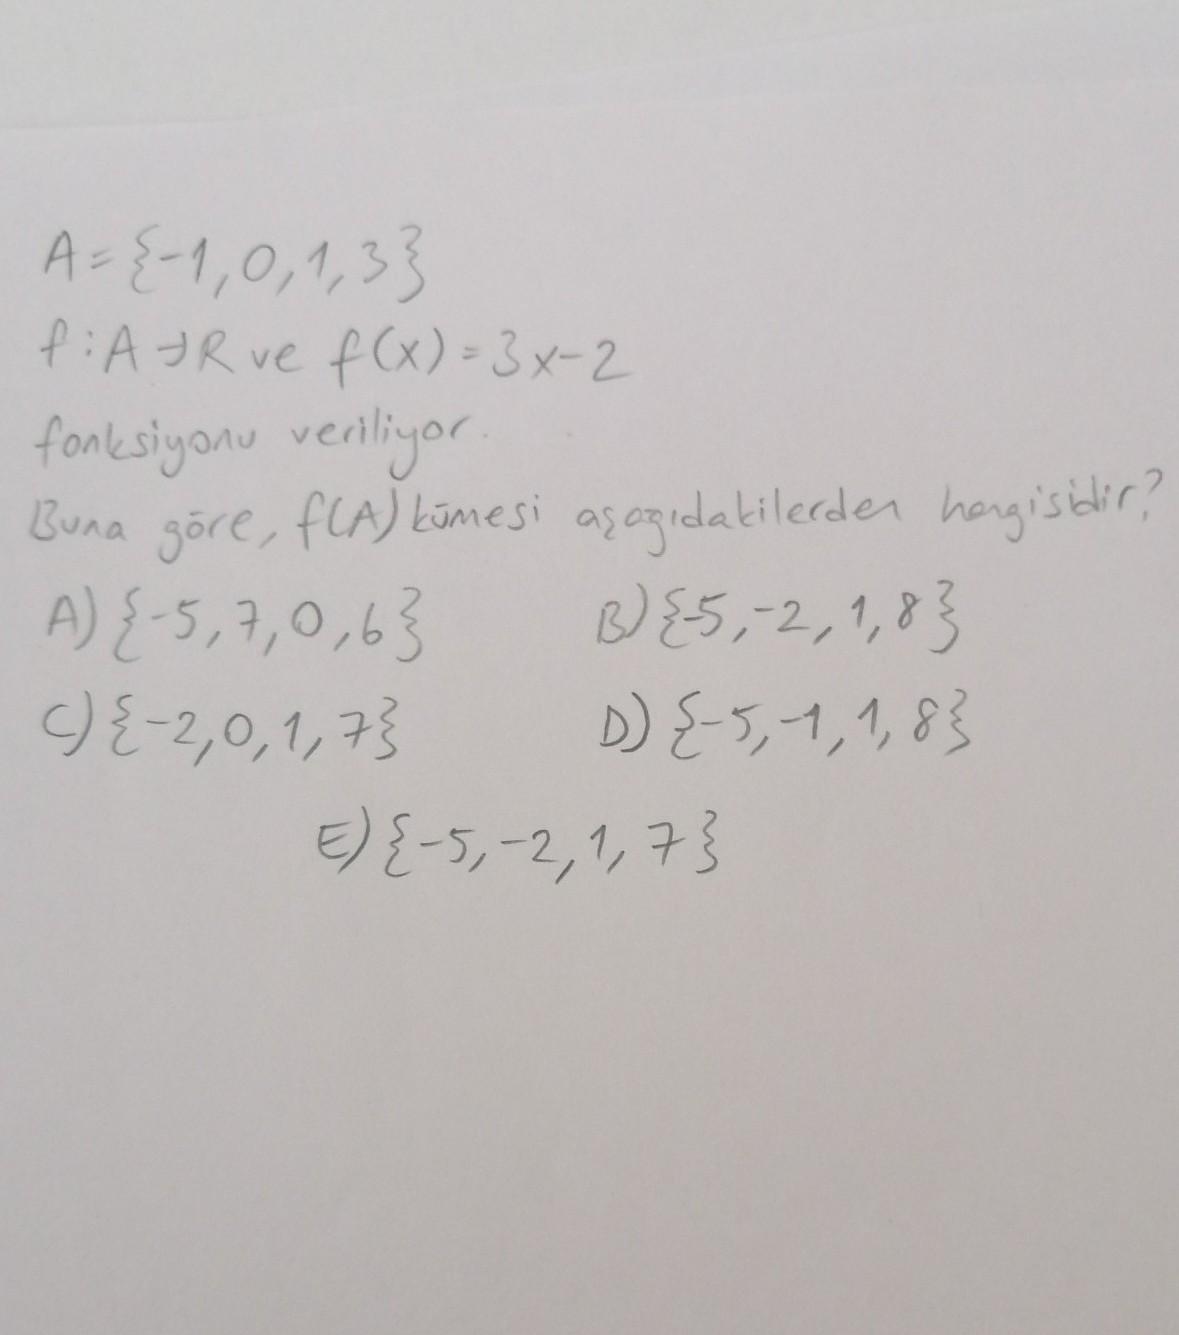 A={-1,0,1,3}
f:A→R ve f(x)=3x-2
fonksiyonu veriliyor.
Buna göre, f(A) kümesi aşağıdakilerden hangisidir?
A) {-5,7,0,6} B) {-5,-2,1,8}
C) {-2,0,1,7} D) {-5,-1,1,8}
E) {-5,-2,1,7}